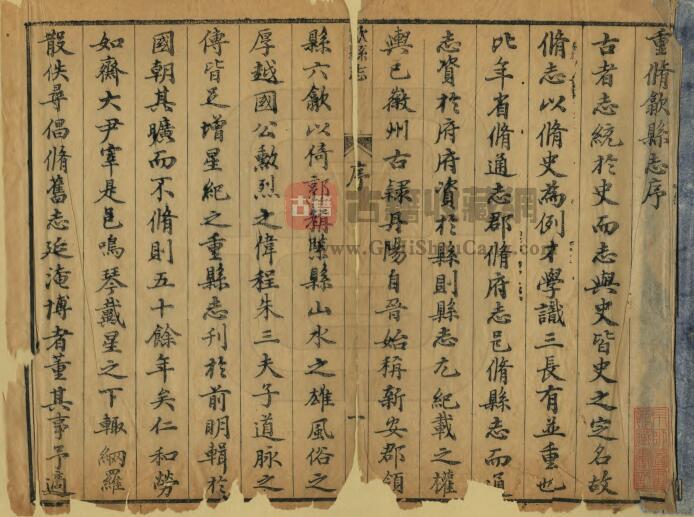 重脩歙縣志序
古者志統於史而志與史皆史之定名故
脩志以脩史為例才學識三長有並重也
比年省脩通志郡脩府志邑脩縣志而通
志資於府府資於縣則縣志尤紀載之權
輿已徽州古隸丹陽自晉始稱新安郡領
歙縣志
序
一
縣六歙以倚郭稱緊縣山水之雄風俗之
厚越國公勳烈之偉程朱三夫子道脉之
傳皆足增星紀之重縣志刊於前明輯於
國朝其曠而不脩則五十餘年矣仁和勞
如齋大尹宰是邑鳴琴戴星之下輒網羅
散佚尋倡脩舊志延淹博者董其事予適
古籍
古籍收藏網
www.GuJiShouCang.com